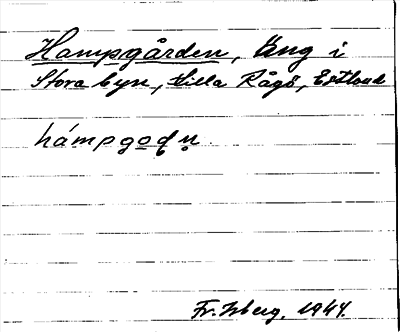 Hampgården, Äng i
Stora byn, Lilla Rågö, Estland
hámpgoɖn̥
Fr. Isberg, 1944.